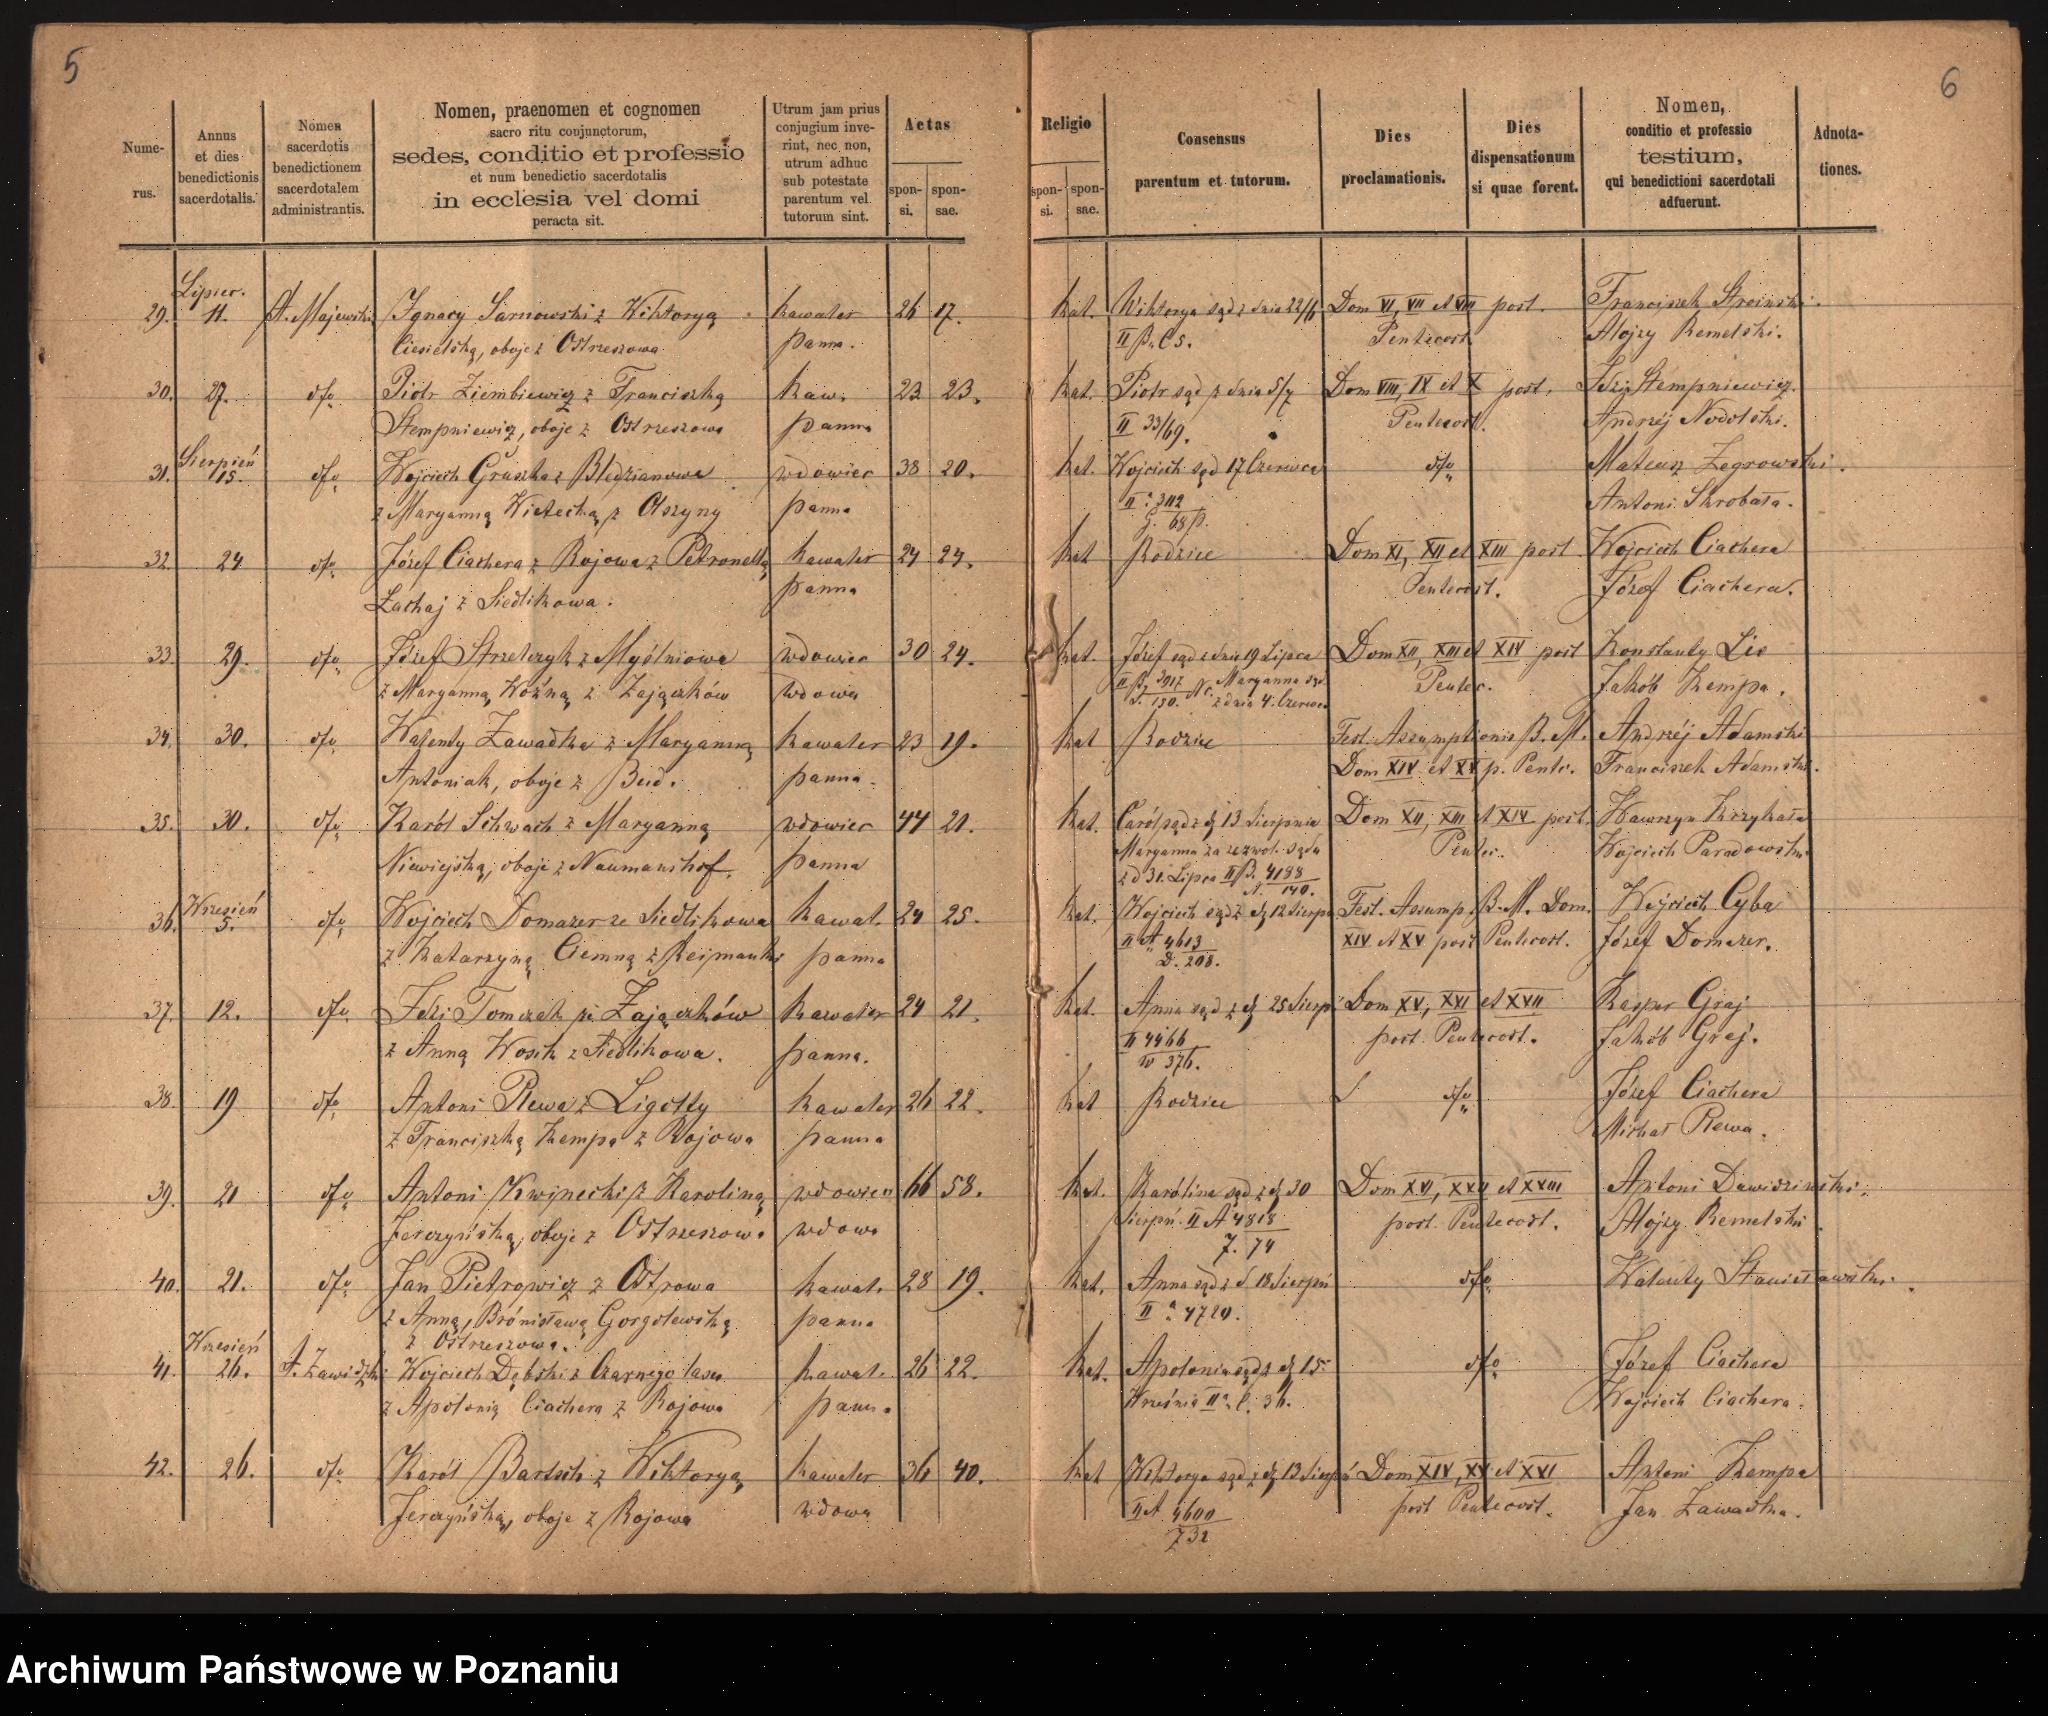 5
6
Nume-
rus.
Annus
et dies
benedictionis
sacerdotalis.
Nomen
sacerdotis
benedictionem
sacerdotalem
administrantis.
Nomen, praenomen et cognomen
sacro ritu conjunctorum,
sedes, conditio et professio
et num benedictio sacerdotalis
in ecclesia vel domi
peracta sit.
Utrum jam prius
conjugium inve-
rint, nec non,
utrum adhuc
sub potestate
parentum vel
tutorum sint.
Aetas
spon-
si.
spon-
sae.
Religio
spon-
si.
spon-
sae.
Consensus
parentum et tutorum.
Dies
proclamationis.
Dies
dispensationum
si quae forent.
Nomen,
conditio et professio
testium,
qui benedictioni sacerdotali
adfuerunt.
Adnota-
tiones.
Lipiec.
29. 11. A. Majewski Ignacy Sarnowski z Wiktoryą kawaler 26 17. kat. Wiktorya sąd z dnia 22/6 Dom VI, VII et VIII post.
Ciesielską, oboje z Ostrzeszowa panna. Pentecost. Alojzy Remelski.
30. 27. dto Piotr Ziembiewicz z Franciszką kaw. 23 23. kat. Piotr sąd z dnia 5/7 Dom VIII, IX et X post.
Stempniewicz, oboje z Ostrzeszowa panna II 33/69. Pentecost.
Sierpień
31. 15. dto Wojciech Gruszka z wdowiec 38 20. kat. Wojciech sąd 17 Czerwca dto Mateusz Zegrowski.
z Maryanną z Olszyny panna Antoni Skrobała.
32. 24 dto Józef Ciachera z Rojowa z Petronellą kawaler 24 24. kat Rodzice Dom XI, XII et XIII post Wojciech Ciachera
Łachaj z Siedlikowa. panna Pentecost. Józef Ciachera.
33. 29. dto Józef Strzelczyk z Myślniowa wdowiec 30 24. kat. Józef sąd z dnia 19 Lipca Dom XII, XIII et XIV post Konstanty Lis
z Maryanną Woźną z Zajączków wdowa Maryanna sąd z dnia 4. Czerwca Pentec. Jakób Kempa.
34. 30. dto Walenty Zawadka z Maryanną kawaler 23 19. kat Rodzice Fest. Assumptionis B. M. Andrzéj Adamski
Antoniak, oboje z Bud. panna. Dom XIV et XV p. Pentc. Franciszek Adamski.
35. 30. dto Karól Schwach z Maryanną wdowiec 44 21. kat. Caról sąd z d. 13 Sierpnia Dom XII, XIII et XIV post. Wawrzyn Krzykała
Niewiejską, oboje z Naumanshof. panna Maryanna za zezwol. sądu Pentec. Wojciech Paradowski
z d 31. Lipca II B. 4188
N. 140.
Wrzesień
36. 5. dto Wojciech Domaszer ze Siedlikowa kawal. 24 25. kat. Wojciech sąd z d. 12 Sierp. Fest. Assump. B. M. Dom. Wojciech Cyba
z Katarzyną Ciemną z panna II A 4613 XIV et XV post Pentecost. Józef Domaszer.
D. 208.
37. 12. dto Idzi Tomczak z Zajączków kawaler 24 21. kat. Anna sąd z d. 25 Sierp. Dom XV, XVI et XVII Kasper Graj
z Anną Wosik z Siedlikowa. panna. II 4466 post. Pentecost. Jakób Graj.
W 376.
38. 19 dto Antoni Rewa z Ligotty kawaler 26 22. kat Rodzice dto Józef Ciachera
z Franciszką Kempą z Rojowa panna Michał Rewa.
39. 21 dto Antoni z Karoliną wdowiec 66 58. kat. Karólina sąd z d. 30 Dom XVI, XVII et XVIII Antoni Dawidziński.
Jerczyńską, oboje z Ostrzeszowa wdowa Sierpń. II A 4818 post. Pentecost. Alojzy Remelski
J. 74
40. 21. dto Jan Pietrowicz z Ostrowa kawal. 28 19. kat. Anna sąd z d 18 Sierpń dto Walenty Stanisławski.
z Anną, Brónisławą Gorgolewską panna II a. 4720.
z Ostrzeszowa.
Wrzesień
41. 26. Wojciech Dębski z Czarnego lasu kawal. 26 22. kat. Apolonia sąd z d. 15 dto Józef Ciachera
z Apolonią Ciachera z Rojowa panna Września II a. C. 36. Wojciech Ciachera.
42. 26. dto Karól Bartsch z Wiktoryą kawaler 36 40. kat Wiktorya sąd z d. 13 Sierpń Dom XIV, XV et XVI Antoni Kempa
Jerczyńską, oboje z Rojowa wdowa II A 4600 post Pentecost. Jan Zawadka.
732
Archiwum Państwowe w Poznaniu